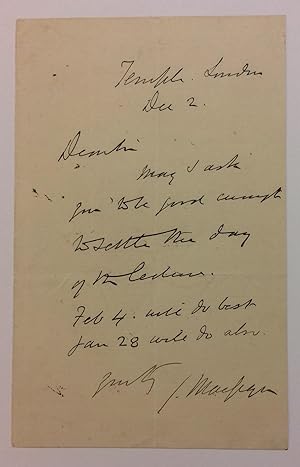 Temple. London
Dec 2.
Dear Sir
May I ask
you to be good enough
to settle the day
of the Lecture.
Feb 4. will do best
Jan 28 will do also.
yours truly
J. MacGregor